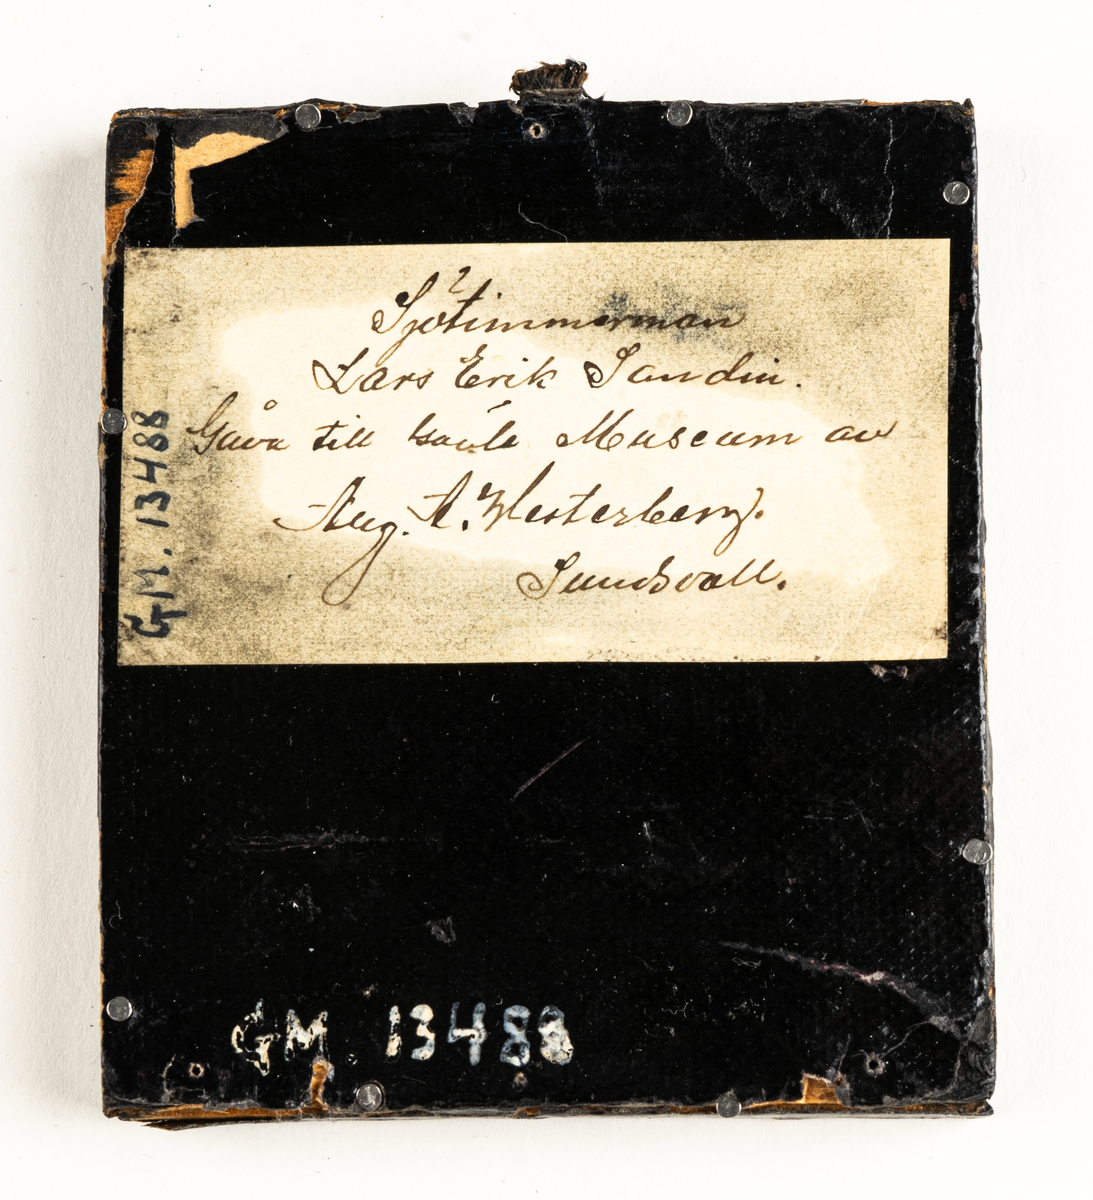 Sjötimmerman
Lars Erik Sandin.
Gåva till Gävle Museum av
Aug. A. Westerberg.
Sundsvall.
GM. 13488
GM 13488